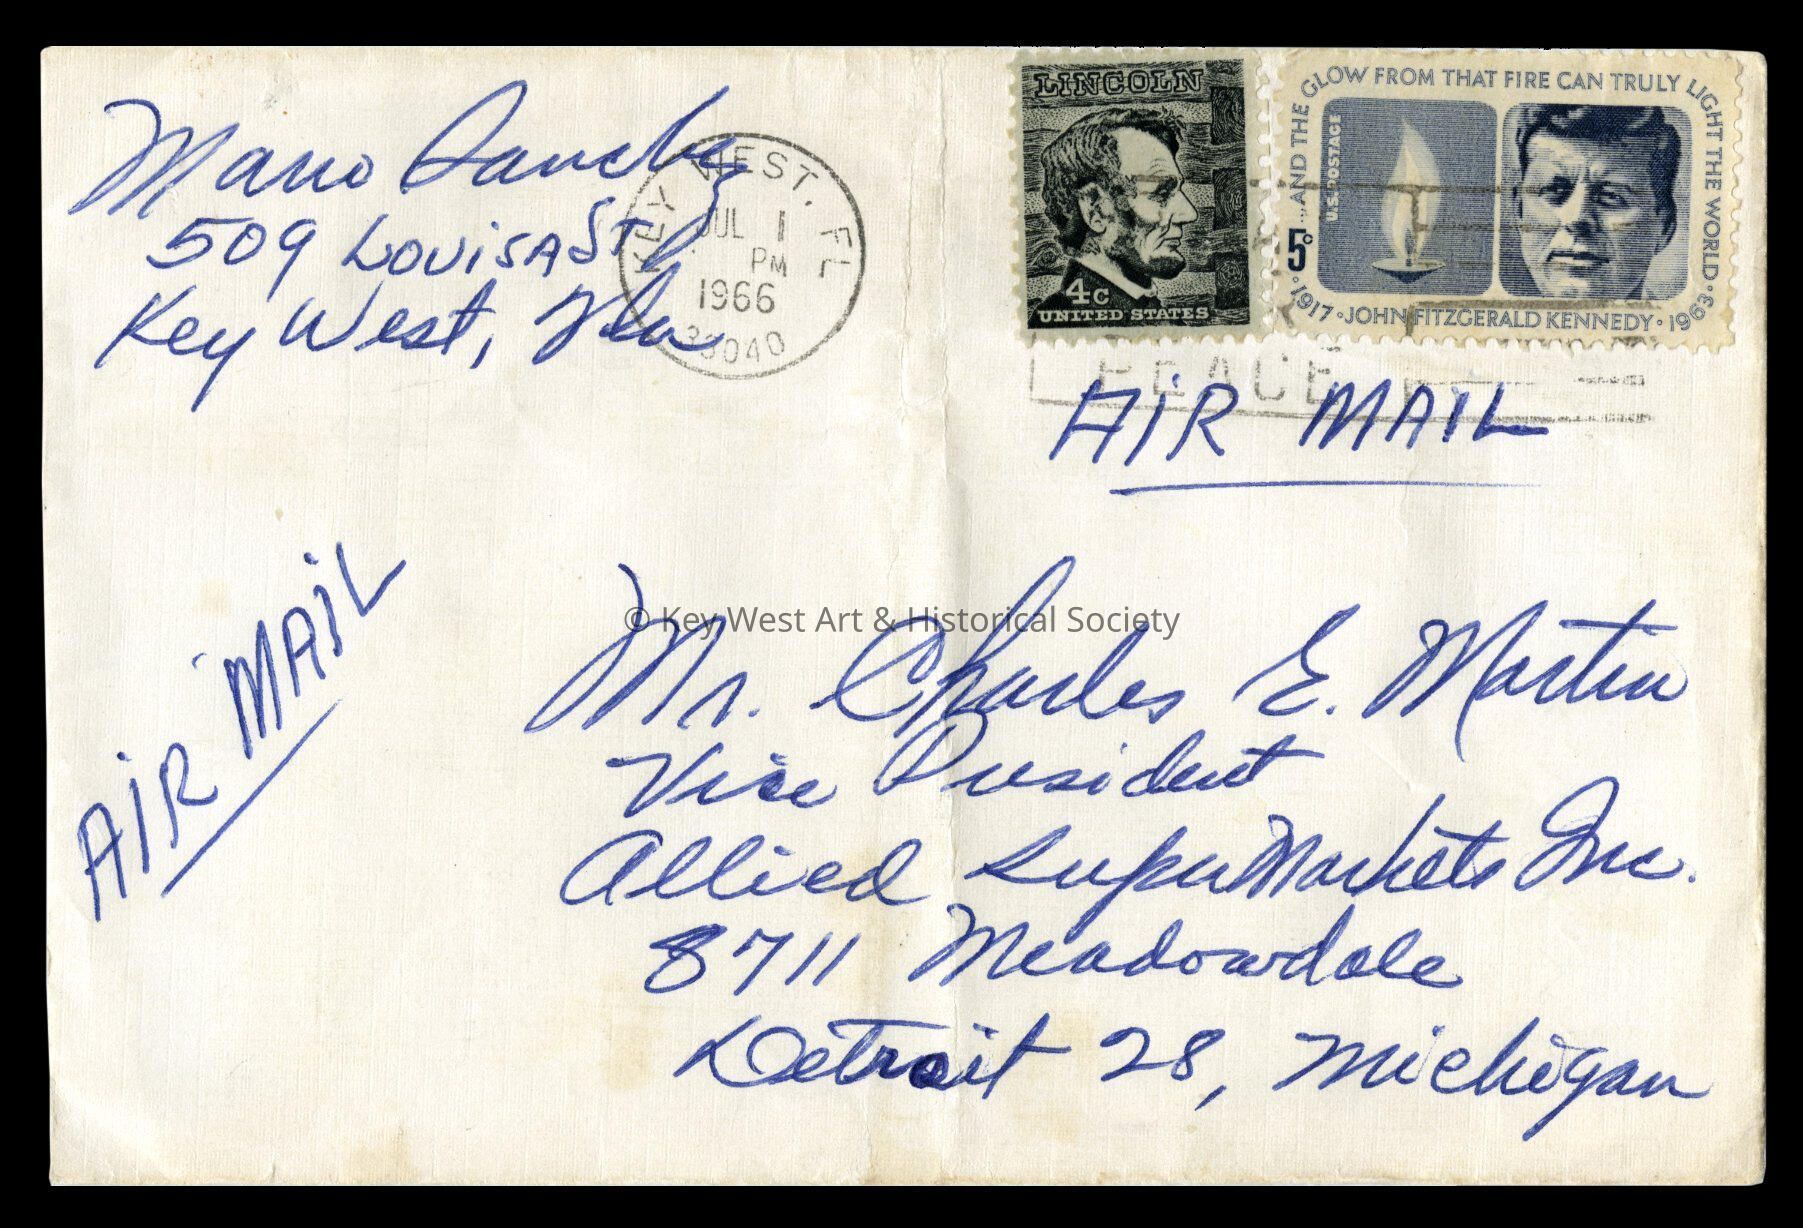 Mario Sanchez
509 Louisa St
Key West, Fla
KEY WEST, FL
JUL 1
PM
1966
33040
LINCOLN
4c
UNITED STATES
...AND THE GLOW FROM THAT FIRE CAN TRULY LIGHT THE WORLD
U.S. POSTAGE
5c
1917 · JOHN FITZGERALD KENNEDY · 1963
PEACE
AIR MAIL
AIR MAIL
© Key West Art & Historical Society
Mr. Charles E. Martin
Vice President
Allied SuperMarkets Inc.
8711 Meadowdale
Detroit 28, Michigan